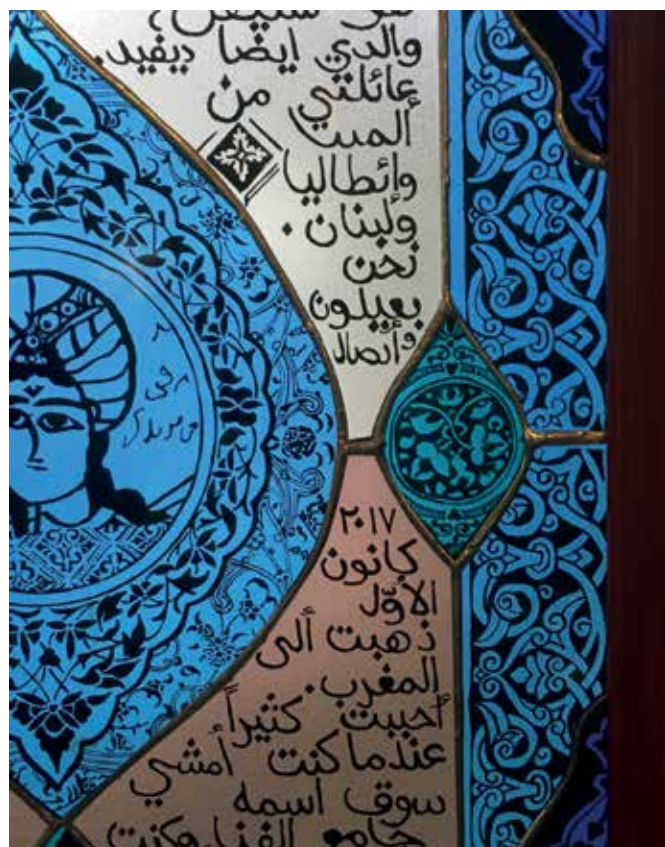 والدي ايضا ديفيد.
عائلتي من
ألمت
وإطاليا
ولبنان.
نحن
بعيلون
وأتصال
٢٠١٧
كانون
الاوّل
ذهبت ألى
المغرب.
أحببت كثيراً
عندما كنت أمشي
سوق اسمه
جامع الفنا، وكنت